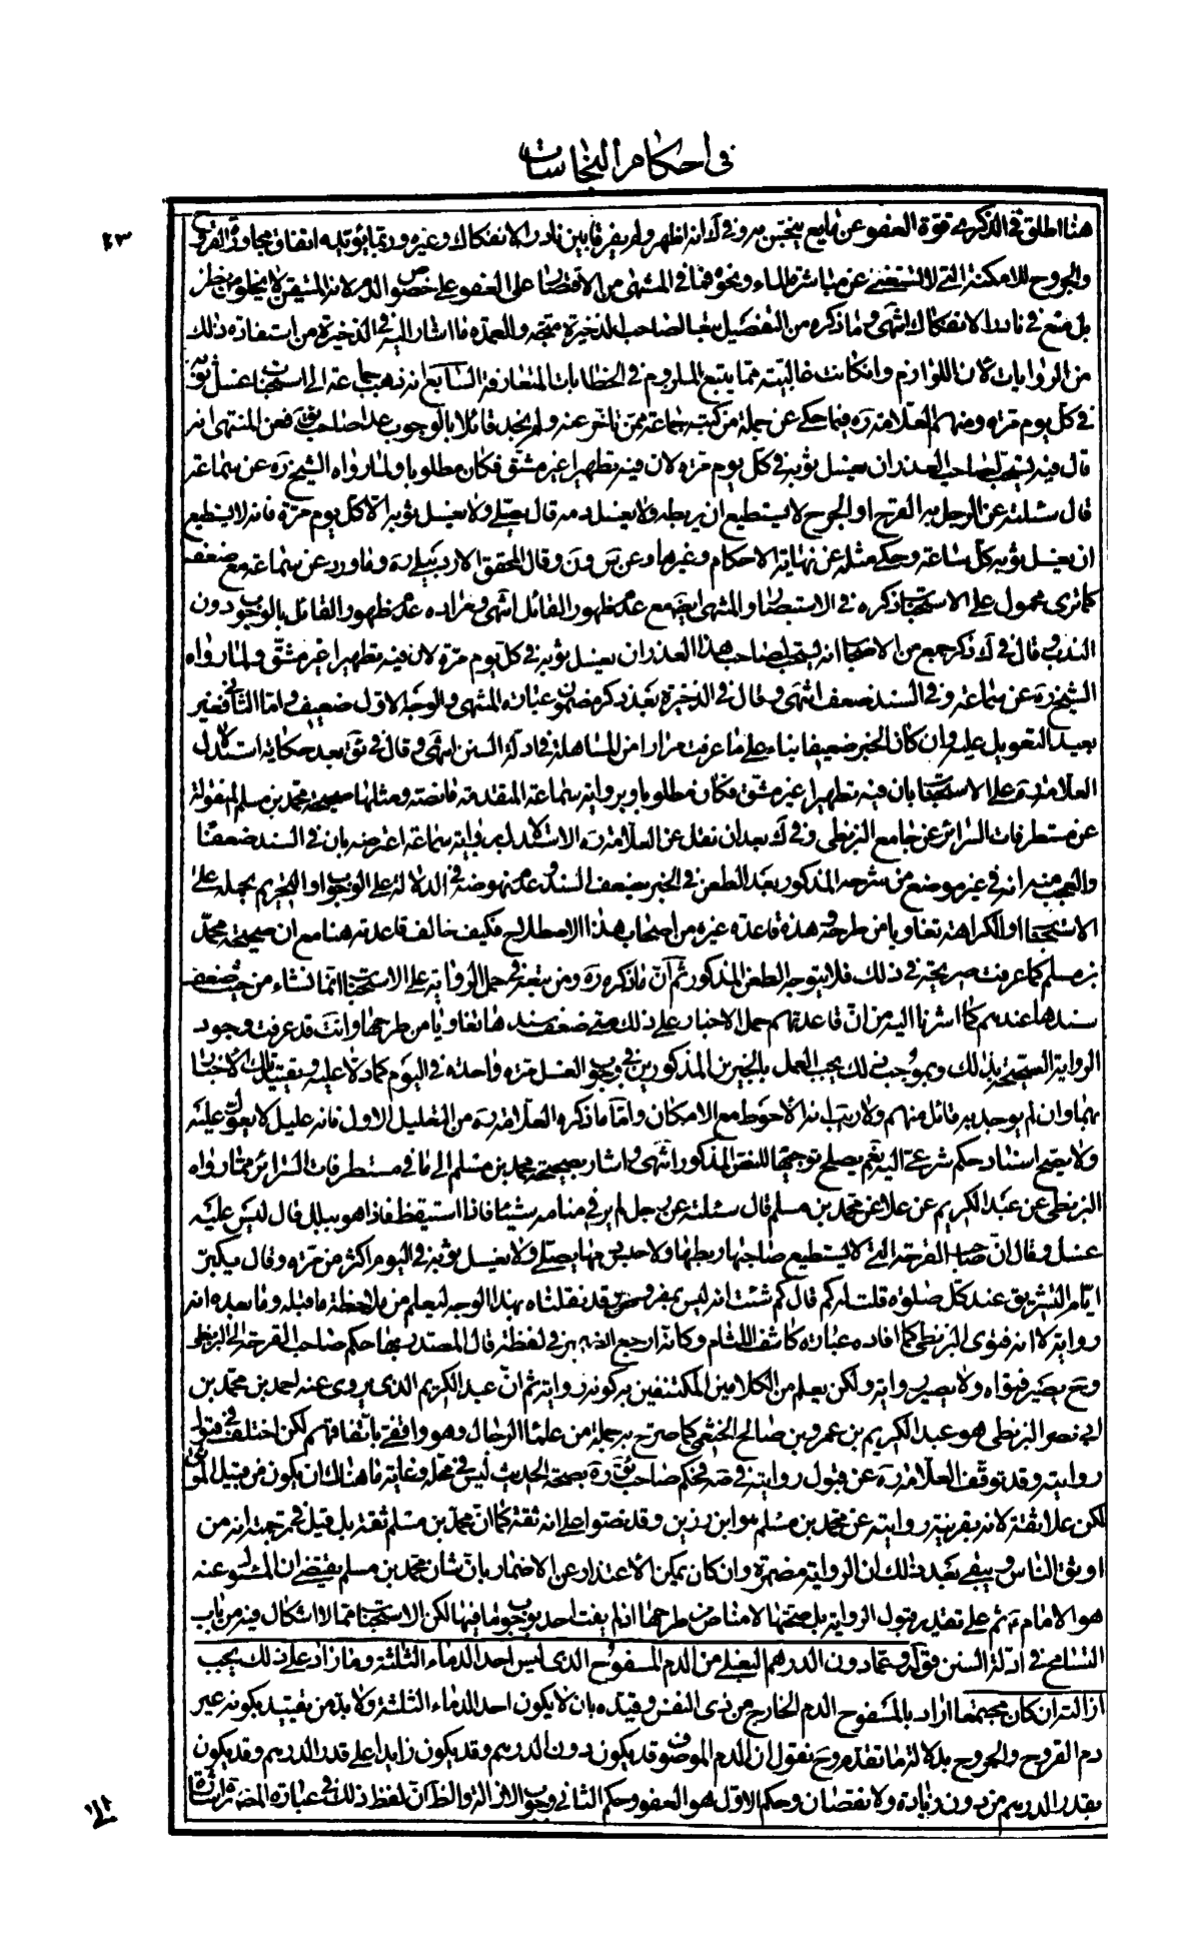 في احكام النجاسات
٤٣
هذا اطلق في الذكرى قوة العفو عن مايع يتنجس به وفي ك انه اظهر ولم يفرقا بين نادر الانفكاك وغيره وربما يؤيد به اتفاق مجاورة القروح
والجروح للامكنة التي لا تستغنى عن مباشرة الماء ونحوه فما في المنتهى من الاقتصار على العفو على خصوص الدم لانه المتيقن لا يخلو من نظر
بل منع في نادر الانفكاك انتهى وما ذكره من التفصيل تبعا لصاحب الذخيرة متجه والعمدة ما اشار اليه في الذخيرة من استفادة ذلك
من الروايات لان اللوازم وان كانت غالبية مما يتبع الملزوم في الخطابات المتعارفة السابع انه ذهب جماعة الى استحباب غسل ثوبه
في كل يوم مرة ومنهم العلامة ره فيما حكى عن جملة من كتبه جماعة ممن تاخر عنه ولم نجد قائلا بالوجوب عدا صاحب ئق فعن المنتهى انه
قال فيه يستحب لصاحب العذر ان يغسل ثوبه في كل يوم مرة لان فيه تطهيرا غير مشق فكان مطلوبا ولما رواه الشيخ ره عن سماعة
قال سئلته عن الرجل به القرح او الجرح لا يستطيع ان يربطه ولا يغسل دمه قال يصلي ولا يغسل ثوبه الا كل يوم مرة فانه لا يستطيع
ان يغسل ثوبه كل ساعة وحكى مثله عن نهاية الاحكام وغيرها وعن س ون وقال المحقق الاردبيلي ره وما ورد عن سماعة مع ضعفه
كما ترى محمول على الاستحباب ذكره في الاستبصار والمنتهى ايضا مع عدم ظهور القائل انتهى ومراده عدم ظهور القائل بالوجوب دون
الندب وقال في ك ذكر جمع من الاصحاب انه يستحب لصاحب هذا العذر ان يغسل ثوبه في كل يوم مرة لان فيه تطهيرا غير مشق ولما رواه
الشيخ ره عن سماعة وفي السند ضعف انتهى وقال في الذخيرة بعد ذكر مضمون عبارة المنتهى والوجه الاول ضعيف واما الثاني فغير
بعيد التعويل عليه وان كان الخبر ضعيفا بناء على ما عرفت مرارا من المساهلة في ادلة السنن انتهى وقال في ئق بعد حكاية استدلال
العلامة ره على الاستحباب بان فيه تطهيرا غير مشق فكان مطلوبا وبرواية سماعة المتقدمة ما نصه ومثلها صحيحة محمد بن مسلم المنقولة
عن مستطرفات السرائر عن جامع البزنطي وفي ك بعد ان نقل عن العلامة ره الاستدلال برواية سماعة اعترضه بان في السند ضعفا
والعجب منه انه في غير موضع من شرحه المذكور بعد الطعن في الخبر بضعف السند وعدم نهوضه في الدلالة على الوجوب او التحريم يحمله على
الاستحباب او الكراهة تفاديا من طرحه وهذه قاعدة غيره من اصحاب هذا الاصطلاح فكيف خالف قاعدته هنا مع ان صحيحة محمد
بن مسلم كما عرفت صريحة في ذلك فلا يتوجه الطعن المذكور ثم ان ما ذكره ره ومن تبعه في حمل الرواية على الاستحباب انما نشاء من حيث ضعف
سندها عندهم كما اشرنا اليه من ان قاعدتهم حمل الاخبار على ذلك متى ضعف سندها تفاديا من طرحها وانت قد عرفت وجود
الرواية الصحيحة بذلك وبموجب ذلك يجب العمل بالخبرين المذكورين في وجوب الغسل مرة واحدة في اليوم كما دلا عليه وتقييد تلك الاخبار
بهما وان لم يوجد به قائل منهم ولا ريب انه الاحوط مع الامكان واما ما ذكره العلامة ره من التعليل الاول فانه عليل لا يعول عليه
ولا يصح استناد حكم شرعي اليه نعم يصلح توجيها للنص المذكور انتهى واشار بصحيحة محمد بن مسلم الى ما في مستطرفات السرائر مما رواه
البزنطي عن عبد الكريم عن علا عن محمد بن مسلم قال سئلته عن رجل لم ير في منامه شيئا فاذا استيقظ فاذا هو ببلل قال ليس عليه
غسل وقال ان صاحب القرحة التي لا يستطيع صاحبها ربطها ولا حبس دمها يصلي ولا يغسل ثوبه في اليوم اكثر من مرة وقال يكبر
ايام التشريق عند كل صلوة قلت له كم قال كم شئت انه ليس بمفروض وقد نقلناه بهذا الوجه ليعلم من ملاحظة ما قبله وما بعده انه
رواية لا انه فتوى البزنطي كما افاده عبارة كاشف اللثام وكانه ارجع الضمير في لفظة قال المصدر بها حكم صاحب القرحة الى البزنطي
وح يصير فتواه ولا يصير رواية ولكن يعلم من الكلامين المكتنفين به كونه رواية ثم ان عبد الكريم الذي يروي عنه احمد بن محمد بن
ابي نصر البزنطي هو عبد الكريم بن عمرو بن صالح الخثعمي كما صرح به جملة من علماء الرجال وهو واقفي باتفاقهم لكن اختلف في قبول
روايته وقد توقف العلامة ره عن قبول روايته في صه فحكم صاحب ئق ره بصحة الحديث ليس في محله وغاية ما هناك ان يكون من قبيل الموثق
لكن علا ثقة لانه بقرينة روايته عن محمد بن مسلم هو ابن رزين وقد نصوا على انه ثقة كما ان محمد بن مسلم ثقة بل قيل في ترجمته انه من
اوثق الناس ويبقى بعد ذلك ان الرواية مضمرة وان كان يمكن الاعتذار عن الاضمار بان شان محمد بن مسلم يقتضي ان المسئول عنه
هو الامام ع ثم على تقدير قبول الرواية بل صحتها لا مناص من طرحها اذ لم يفت احد بوجوب ما فيها لكن الاستحباب مما لا اشكال فيه من باب
التسامح في ادلة السنن قوله وعما دون الدرهم البغلي من الدم المسفوح الذي ليس احد الدماء الثلثة وما زاد على ذلك يجب
ازالته ان كان مجتمعا اراد بالمسفوح الدم الخارج من ذي النفس وقيده بان لا يكون احد الدماء الثلثة ولا بد من تقييده بكونه غير
دم القروح والجروح بدلالة ما تقدم وح نقول ان الدم الموصوف قد يكون دون الدرهم وقد يكون زايدا على قدر الدرهم وقد يكون
بقدر الدرهم من دون زيادة ولا نقصان وحكم الاول هو العفو وحكم الثاني وجوب الازالة والظ ان لفظ ذلك في عبارة المصنف ره اشارة
الى